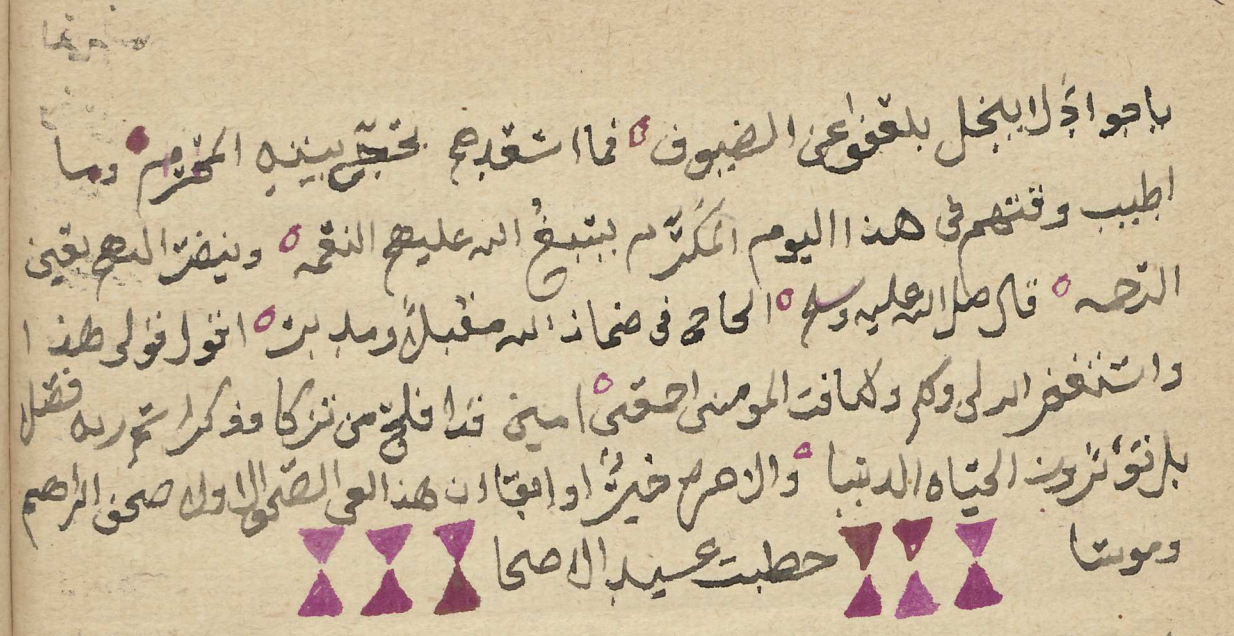 يا جوادًا لا يبخل بلعفو عن الضيوف فما اسعدهم بحج بيته المحرم وما
اطيب وقتهم في هذا اليوم المكرّم بتبغُ الله عليهم النعمه
الرحمه قال صل الله عليه وسلم الحاج في ضمان الله مقبلاً ومدبر اقول قولي هذا
واستغفر الله لي ولكم ولكافت المومنين اجمعين امين قد افلح من تزكا وذكر اسم ربه فصل
بل تؤثرون الحياه الدنيا والاخره خيرٌ او ابقا ان هذا لفي الصحف الاولا صحف ابراهيم
وموسا خطبت عيد الاضحا